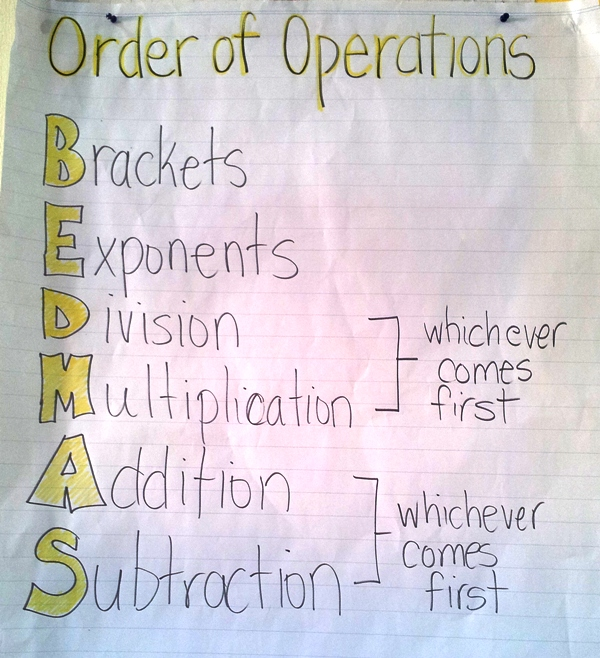 Order of Operations
Brackets
Exponents
Division
Multiplication
whichever
comes
first
Addition
Subtraction
whichever
comes
first